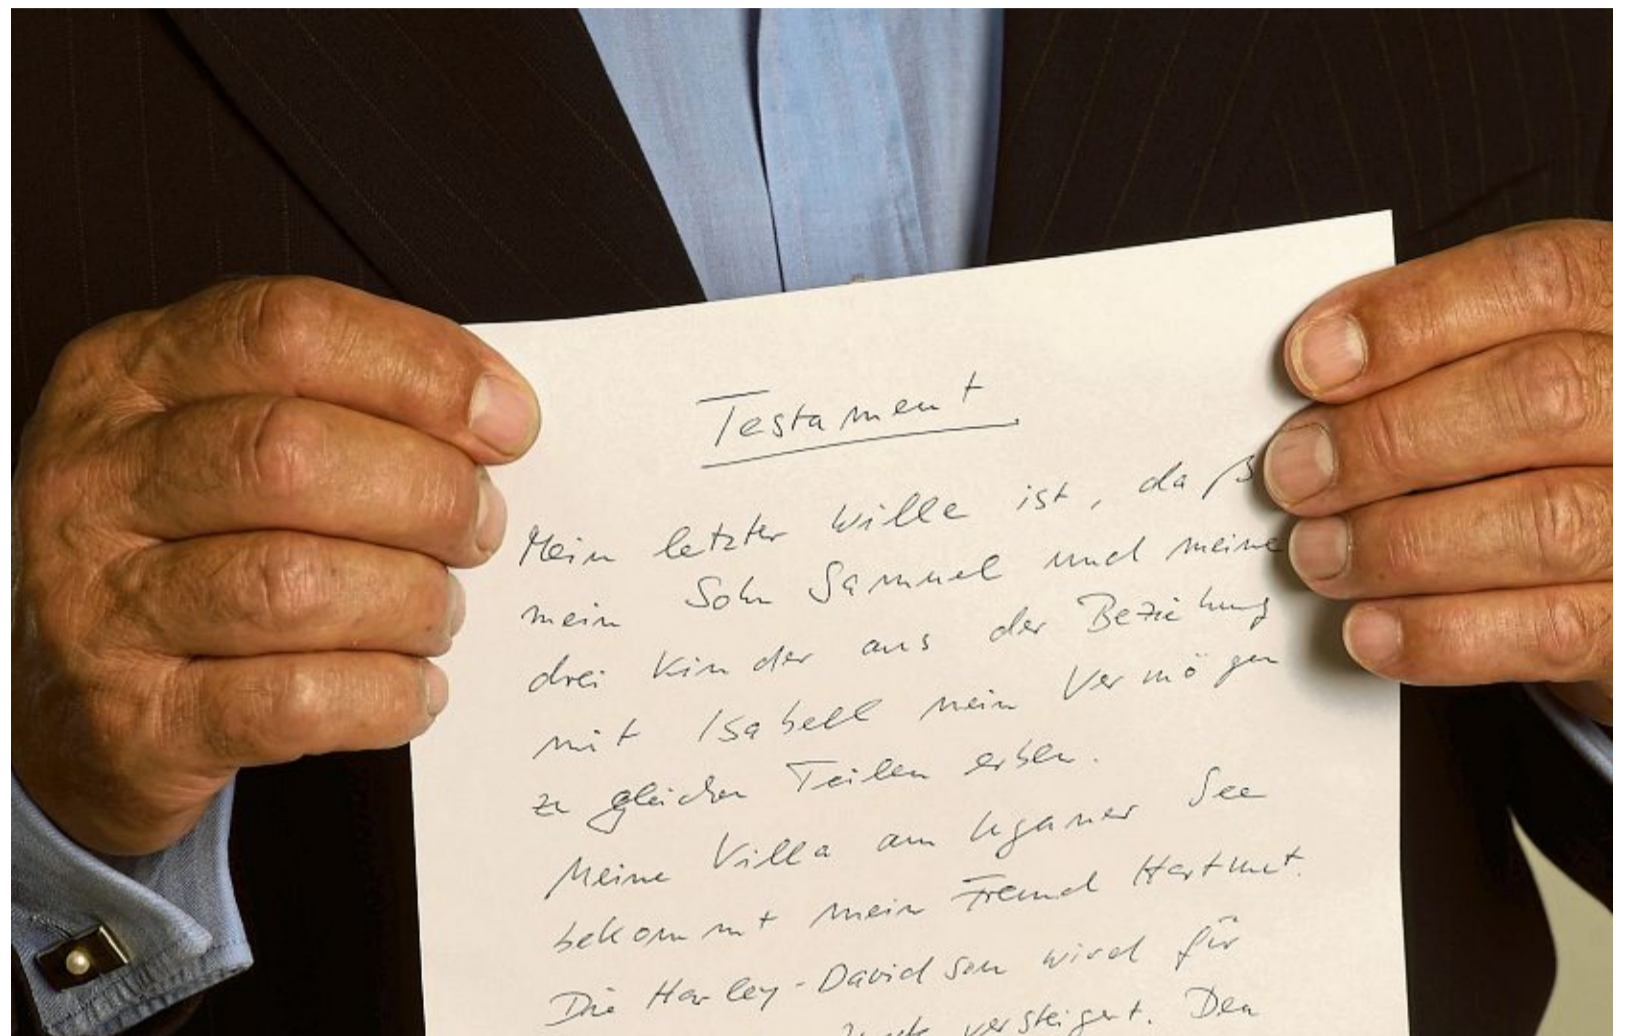 Testament
Mein letzter Wille ist, daß
mein Sohn Samuel und meine
drei Kinder aus der Beziehung
mit Isabell mein Vermögen
zu gleichen Teilen erben.
Meine Villa am Luganer See
bekommt mein Freund Hartmut.
Die Harley-Davidson wird für
versteigert. Den